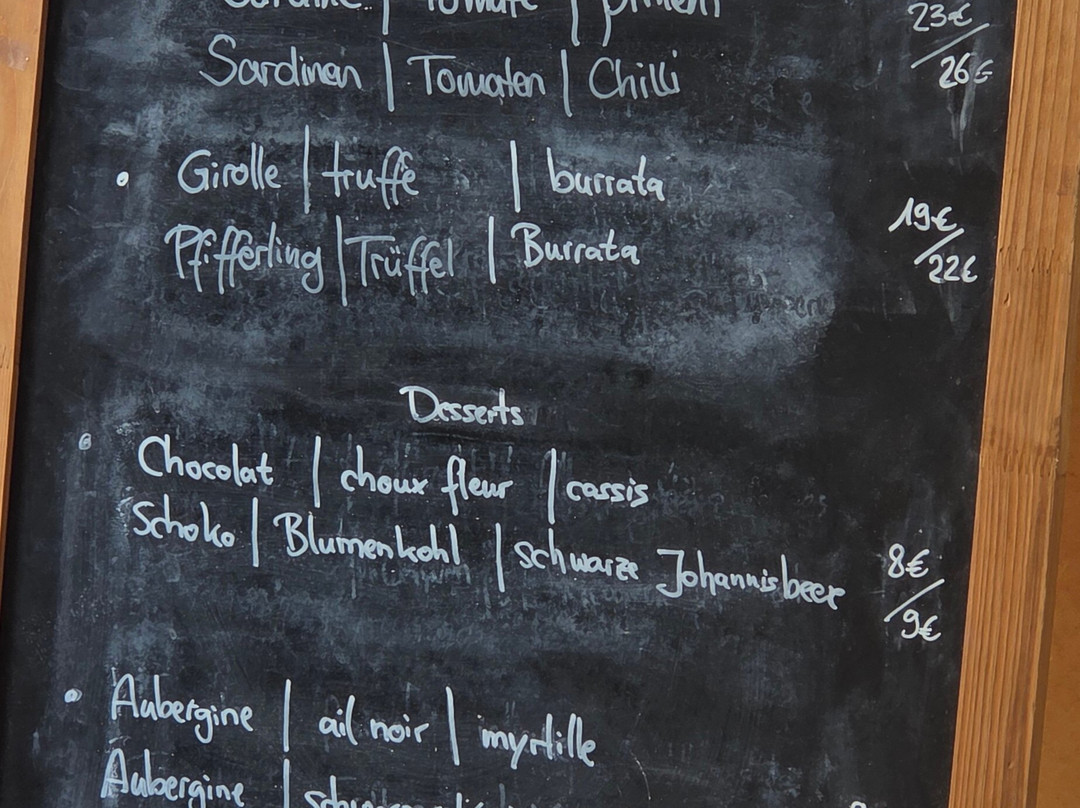 Sardine | Tomate | piment
23€
Sardinen | Tomaten | Chilli
26€
• Girolle | truffe | burrata
19€
Pfifferling | Trüffel | Burrata
22€
Desserts
• Chocolat | choux fleur | cassis
Schoko | Blumenkohl | schwarze Johannisbeere
8€
9€
• Aubergine | ail noir | myrtille
Aubergine |